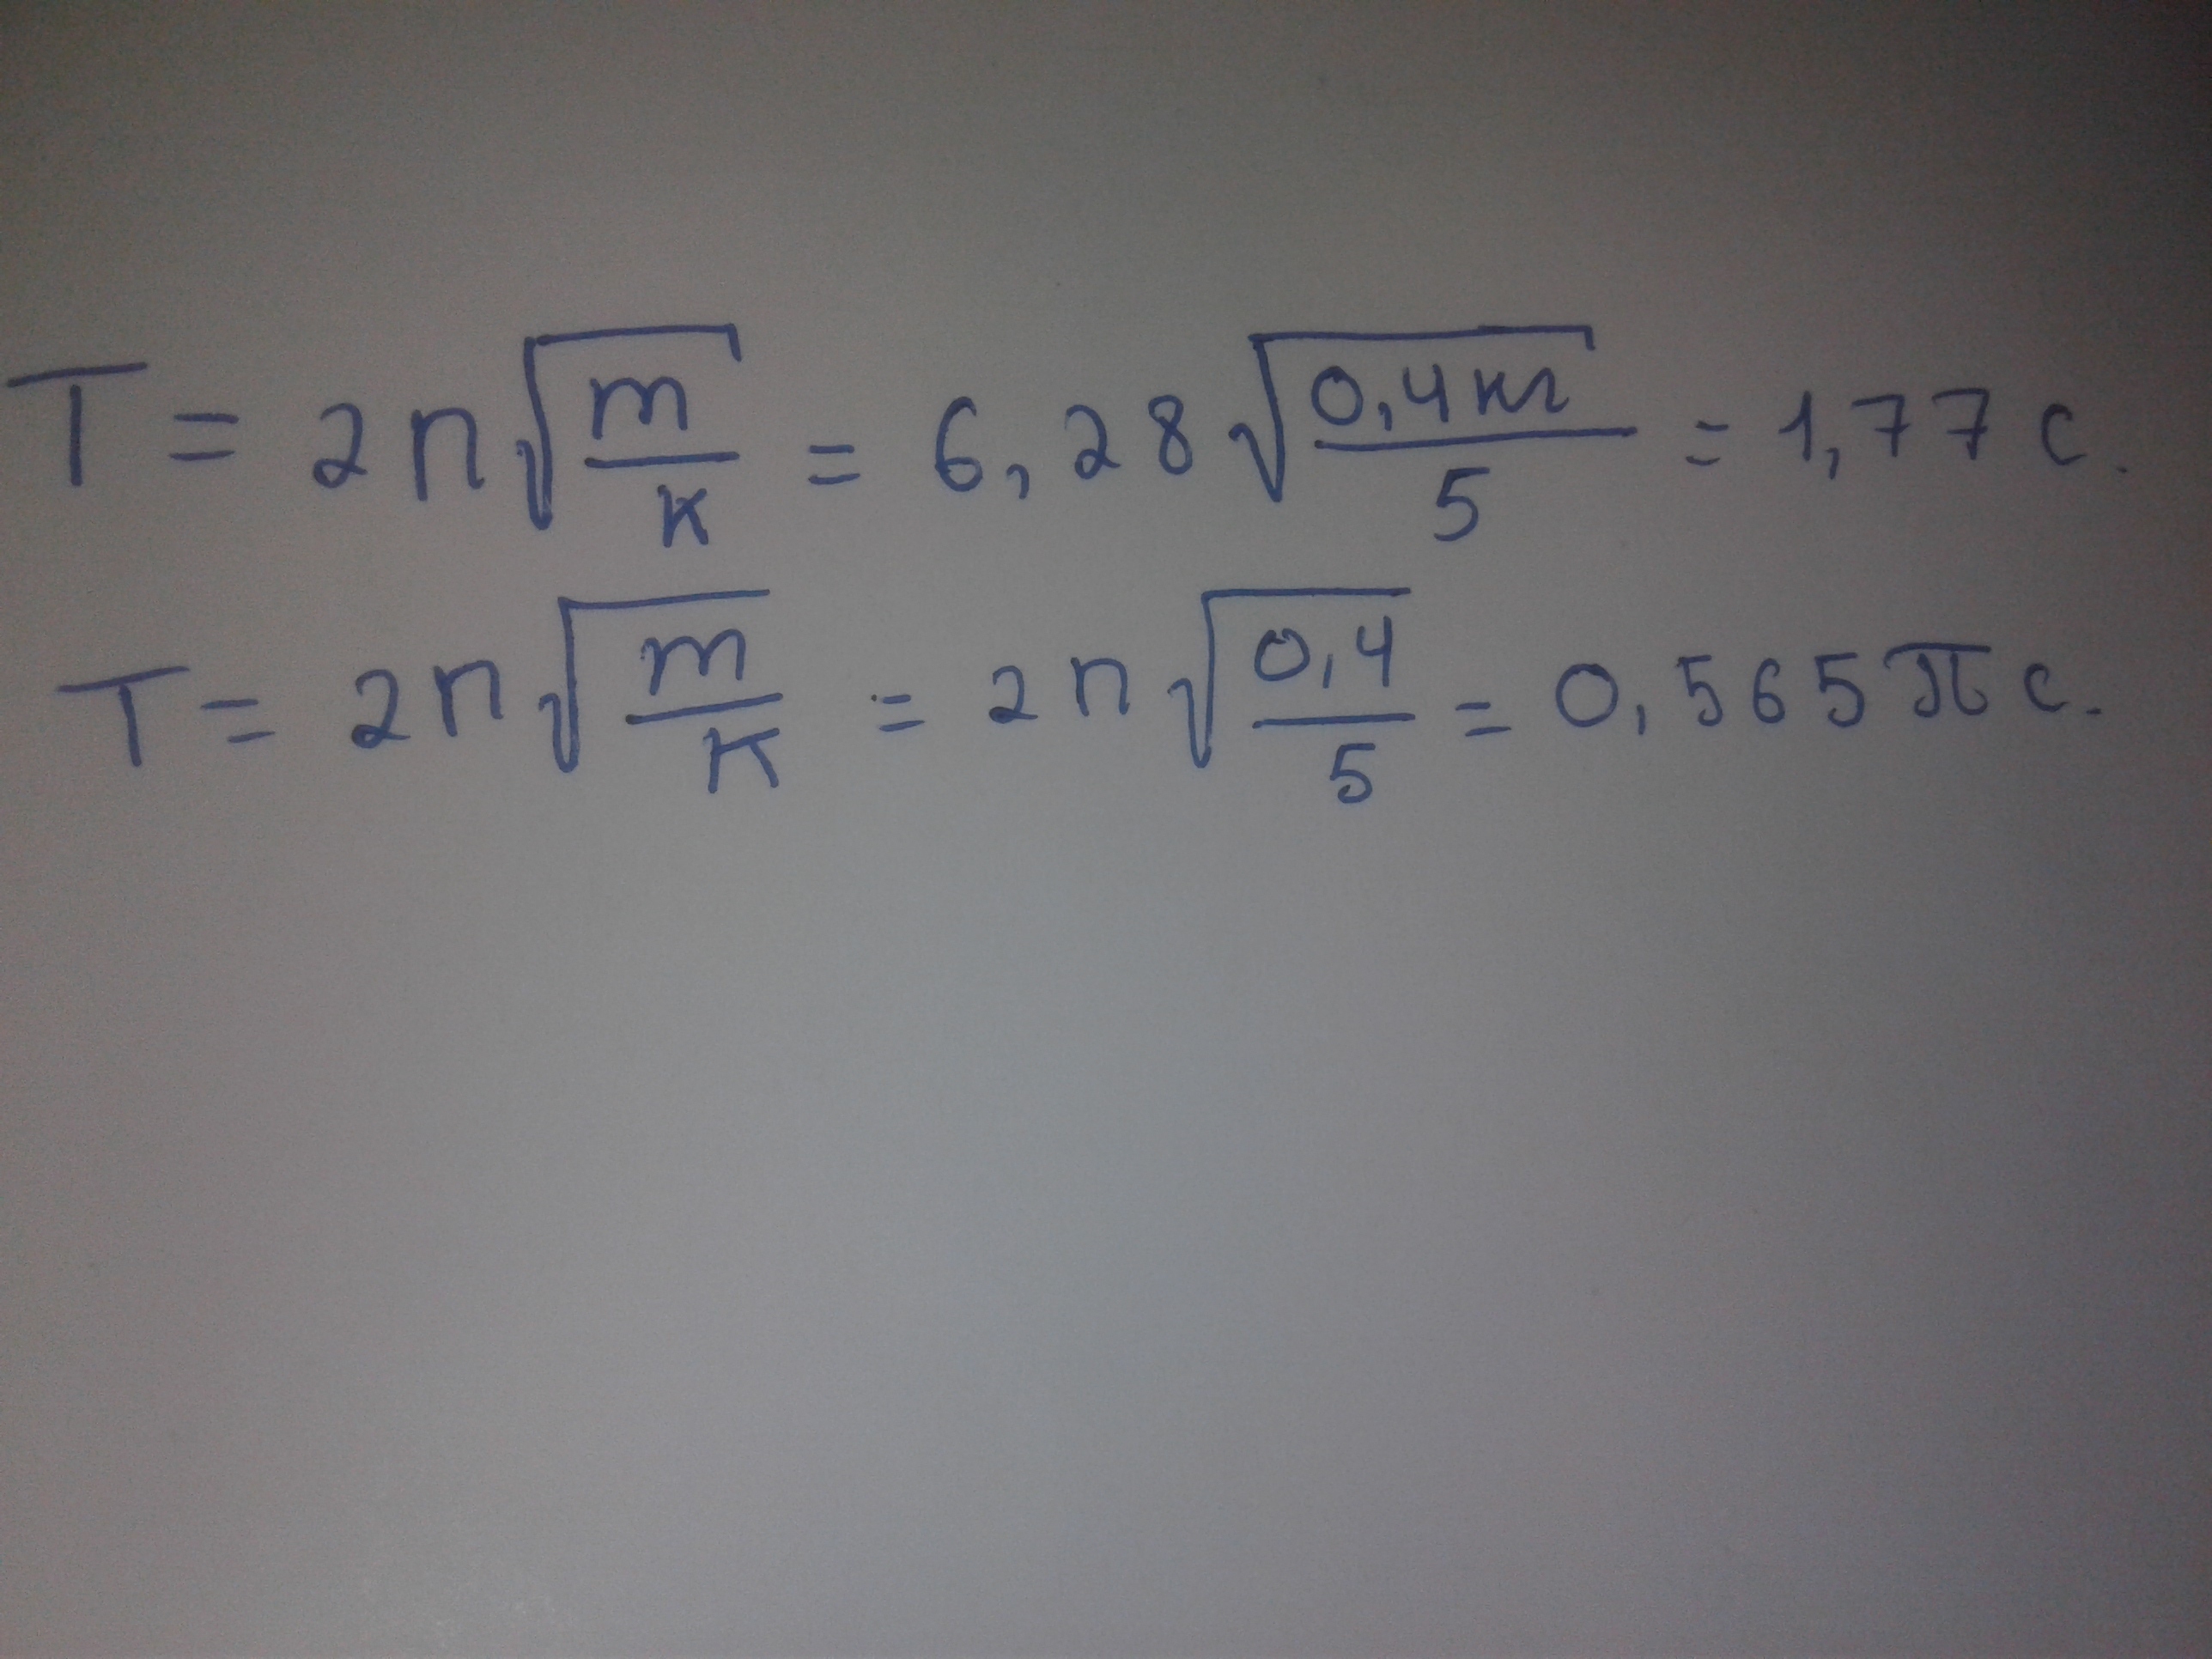 T = 2п√(m/к) = 6,28√(0,4кг/5) = 1,77 с.
T = 2п√(m/к) = 2п√(0,4/5) = 0,565π с.